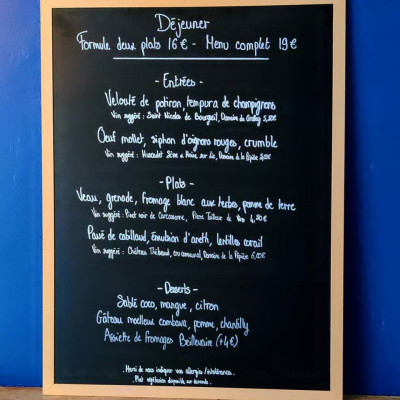 Déjeuner
Formule deux plats 16€ - Menu complet 19€
- Entrées -
Velouté de potiron, tempura de champignons
Vin suggéré : Saint Nicolas de Bourgueil, Domaine du
Oeuf mollet, siphon d'oignons rouges, crumble
Vin suggéré : Muscadet Sèvre et Maine sur Lie, Domaine de la Pépière
- Plats -
Veau, grenade, fromage blanc aux herbes, pomme de terre
Vin suggéré : Pinot noir de Carcassonne, 4,50€
Pavé de cabillaud, émulsion d'aneth, lentilles corail
Vin suggéré : Château Thébaud, cru communal, Domaine de la Pépière
- Desserts -
Sablé coco, mangue, citron
Gâteau moelleux combava, pomme, chantilly
Assiette de fromages Beillevaire (+4€)
. Merci de nous indiquer vos allergies/intolérances.
. Plat végétarien disponible sur demande.